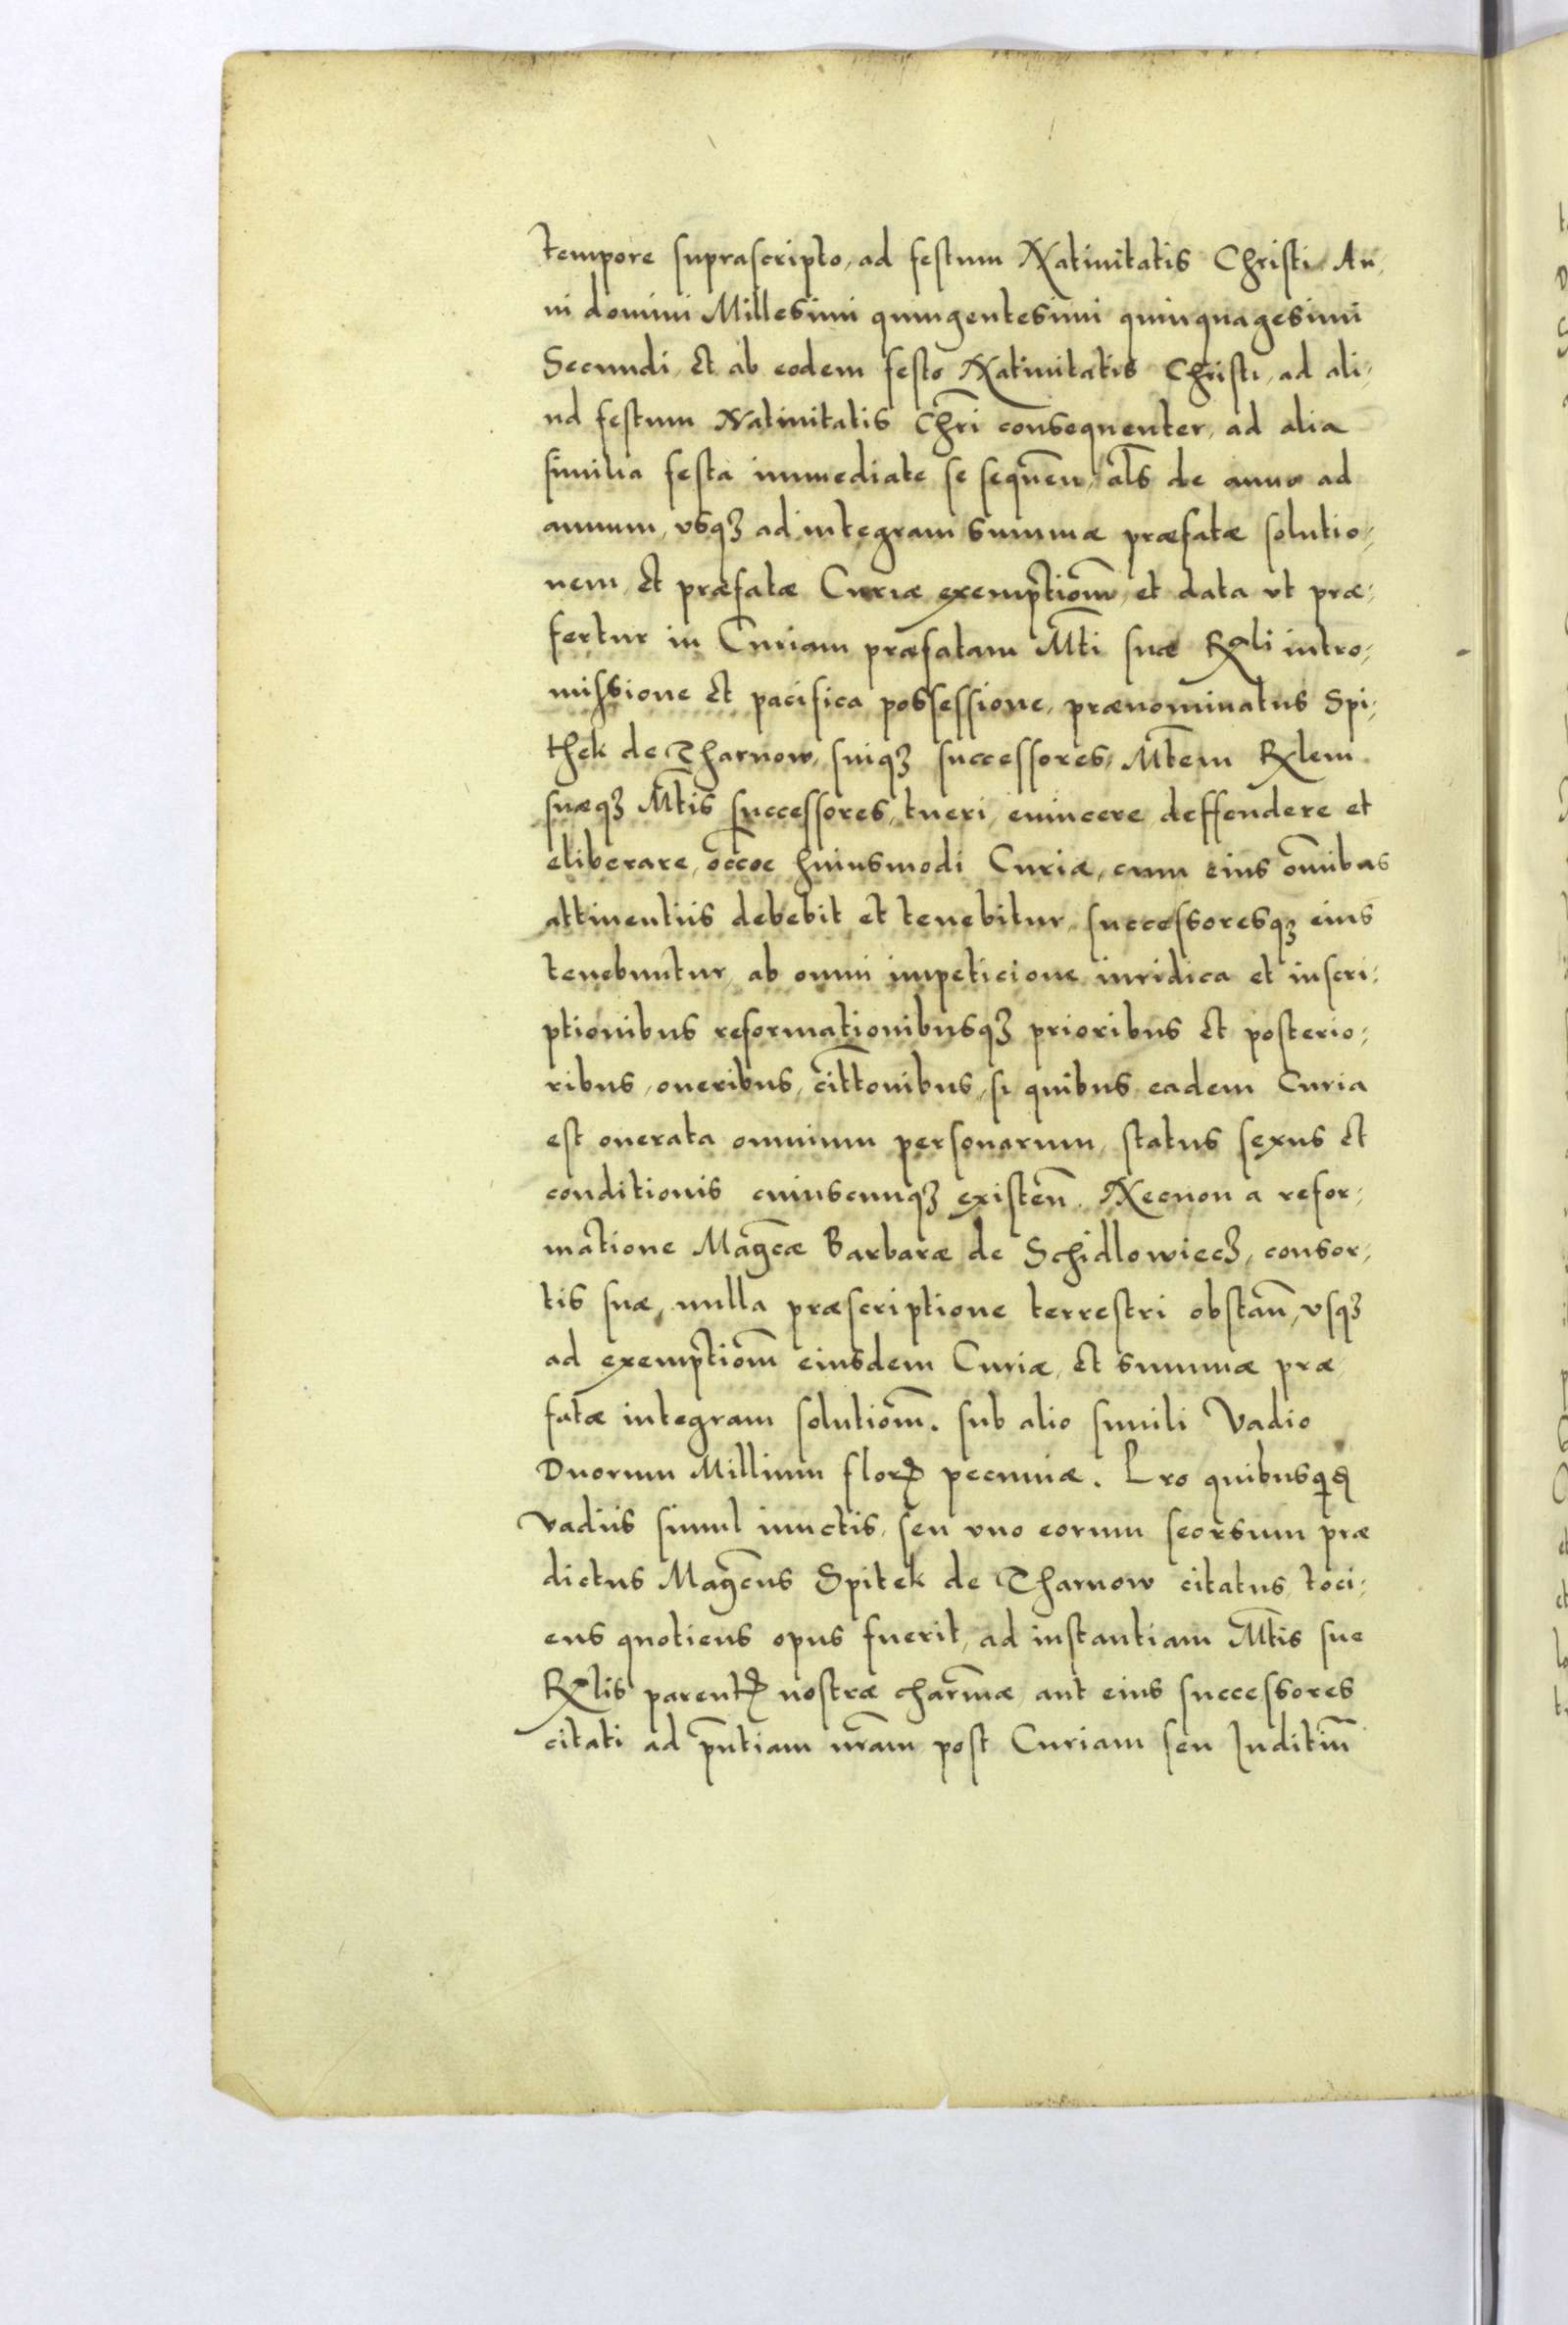 tempore suprascripto, ad festum Natiuitatis Christi An,
ni domini Millesimi quingentesimi quinquagesimi
Secundi, et ab eodem festo Natiuitatis Christi, ad ali,
ud festum Natiuitatis Chr̄i consequenter, ad alia
similia festa immediate se sequen̄, al̄s de anno ad
annum, vsqꝫ ad integram summæ præfatæ solutio,
nem, et præfatæ Curiæ exemptiom̄, et data vt præ,
fertur in Curiam præfatam Mt̄i suæ Rꝉi intro,
missione et pacifica possessione, prænominatus Spi,
thek de Tharnow, suiqꝫ successores, Mt̄em Rꝉem
suæqꝫ Mt̄is successores, tueri, euincere deffendere et
eliberare, occ̄oe huiusmodi Curiæ, cum eius om̄ibus
attinentiis debebit et tenebitur, successoresqꝫ eius
tenebuntur, ab omni impeticione iuridica et inscri,
ptionibus reformationibusqꝫ prioribus et posterio,
ribus, oneribus, citt̄onibus, si quibus eadem Curia
est onerata omnium personarum, status sexus et
conditionis cuiuscunqꝫ existen̄. Necnon a refor,
matione Maḡcæ Barbaræ de Schidlowiecꝫ, consor,
tis suæ, nulla præscriptione terrestri obstan̄, vsqꝫ
ad exemptiom̄ eiusdem Curiæ, et summæ præ
fatæ integram solutiom̄. sub alio simili Vadio
Duorum Millium florꝭ pecuniæ. Pro quibusqꝫ
vadiis simul iunctis, seu vno eorum seorsum præ
dictus Maḡcus Spitek de Tharnow citatus, toci,
ens quotiens opus fuerit, ad instantiam Mt̄is sue
Rꝉis parentꝭ nostræ charm̄æ aut eius successores
citati ad pn̄tiam nr̄am post Curiam seu Juditiū